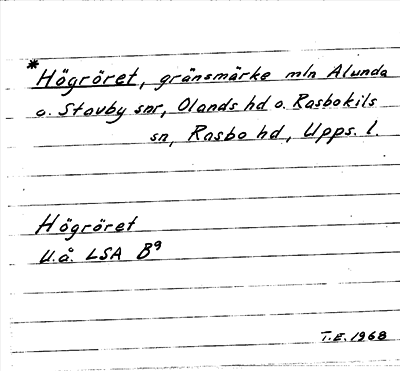 *Högröret, gränsmärke mln Alunda
o. Stavby snr, Olands hd o. Rasbokils
sn, Rasbo hd, Upps. l.
Högröret
U.å. LSA B9
T.E. 1968